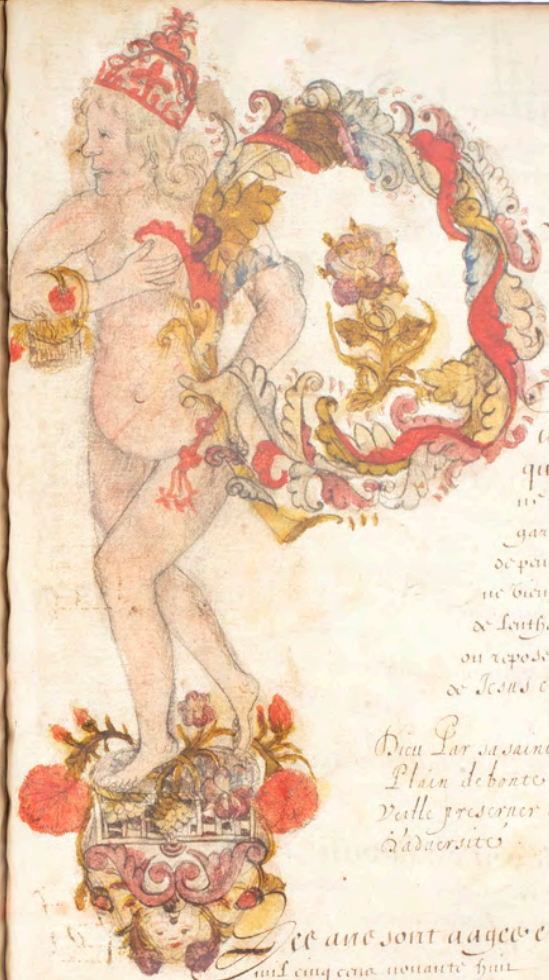 qu
ne
gar
de peu
ne vien
& lenth
ou repose
& Jesus c
Dieu Par sa saint
Plain de bonte
Veille preserner
D'aduersite
ce ane sont aagee e
mil cinq cens nonante huit